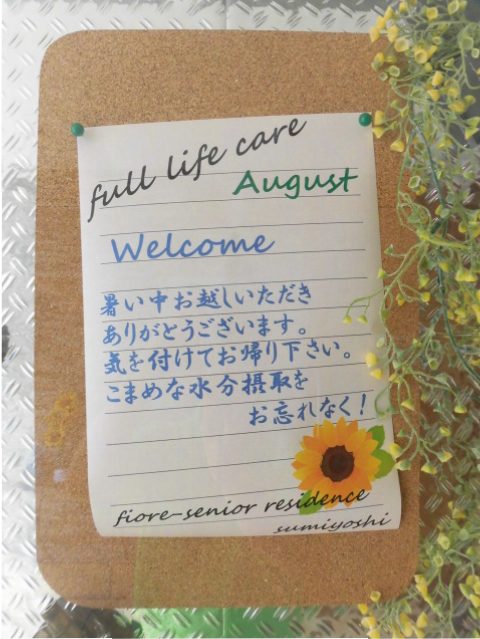 full life care
August
Welcome
暑い中お越しいただき
ありがとうございます。
気を付けてお帰り下さい。
こまめな水分摂取を
お忘れなく!
fiore-senior residence
sumiyoshi